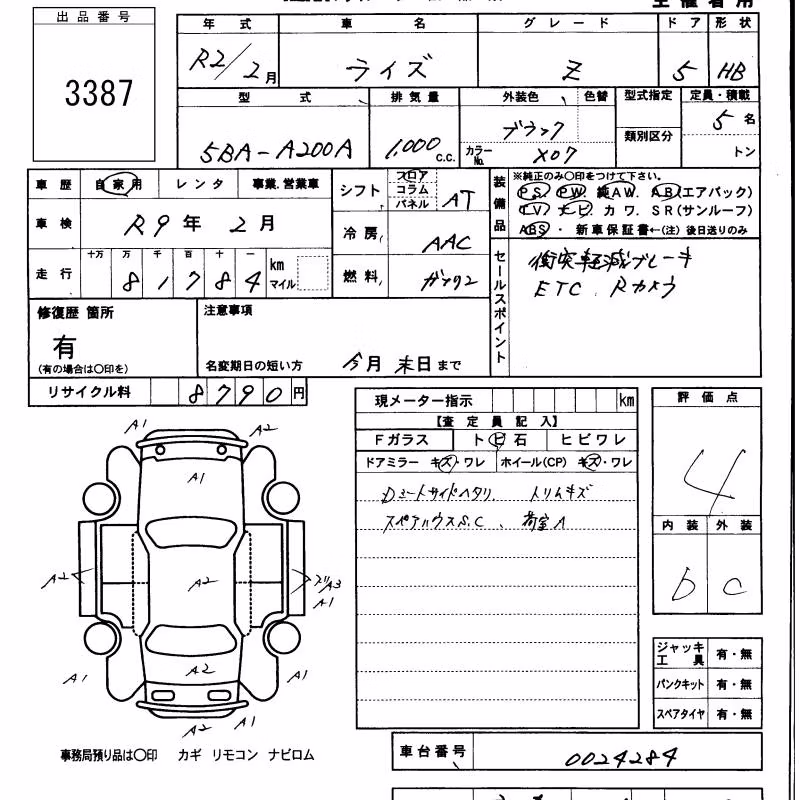 出品番号
3387
年式 車名 グレード ドア 形状
R2/2月 ライズ Z 5 HB
型式 排気量 外装色 色替 型式指定 定員・積載
5BA-A200A 1,000 c.c. ブラック 5名
カラーNo. X07 類別区分 トン
車歴 自家用 レンタ 事業.営業車
車検 R9年 2月
走行 十万 万 千 百 十 一 km マイル
8 1 7 8 4
シフト フロア コラム パネル AT
冷房 AAC
燃料 ガソリン
装備品 ※純正のみ〇印をつけて下さい。
PS. PW. 純AW. AB(エアバック)
TV ナビ カワ. SR(サンルーフ)
ABS ・ 新車保証書←(注) 後日送りのみ
セールスポイント
衝突軽減ブレーキ
ETC. Rカメラ
修復歴 箇所
有
(有の場合は〇印を)
注意事項
名変期日の短い方 今月 末日 まで
リサイクル料 8790円
現メーター指示 km
【査定員記入】
Fガラス トビ石 ヒビワレ
ドアミラー キズ・ワレ ホイール(CP) キズ・ワレ
トリムキズ
スペアハウスS.C、荷室A
評価点
4
内装 外装
b c
A1 A2
A1
A2 A2 A3
A1
A1 A2 A1
A2 A1
ジャッキ工具 有・無
パンクキット 有・無
スペアタイヤ 有・無
事務局預り品は〇印 カギ リモコン ナビロム
車台番号 0024284